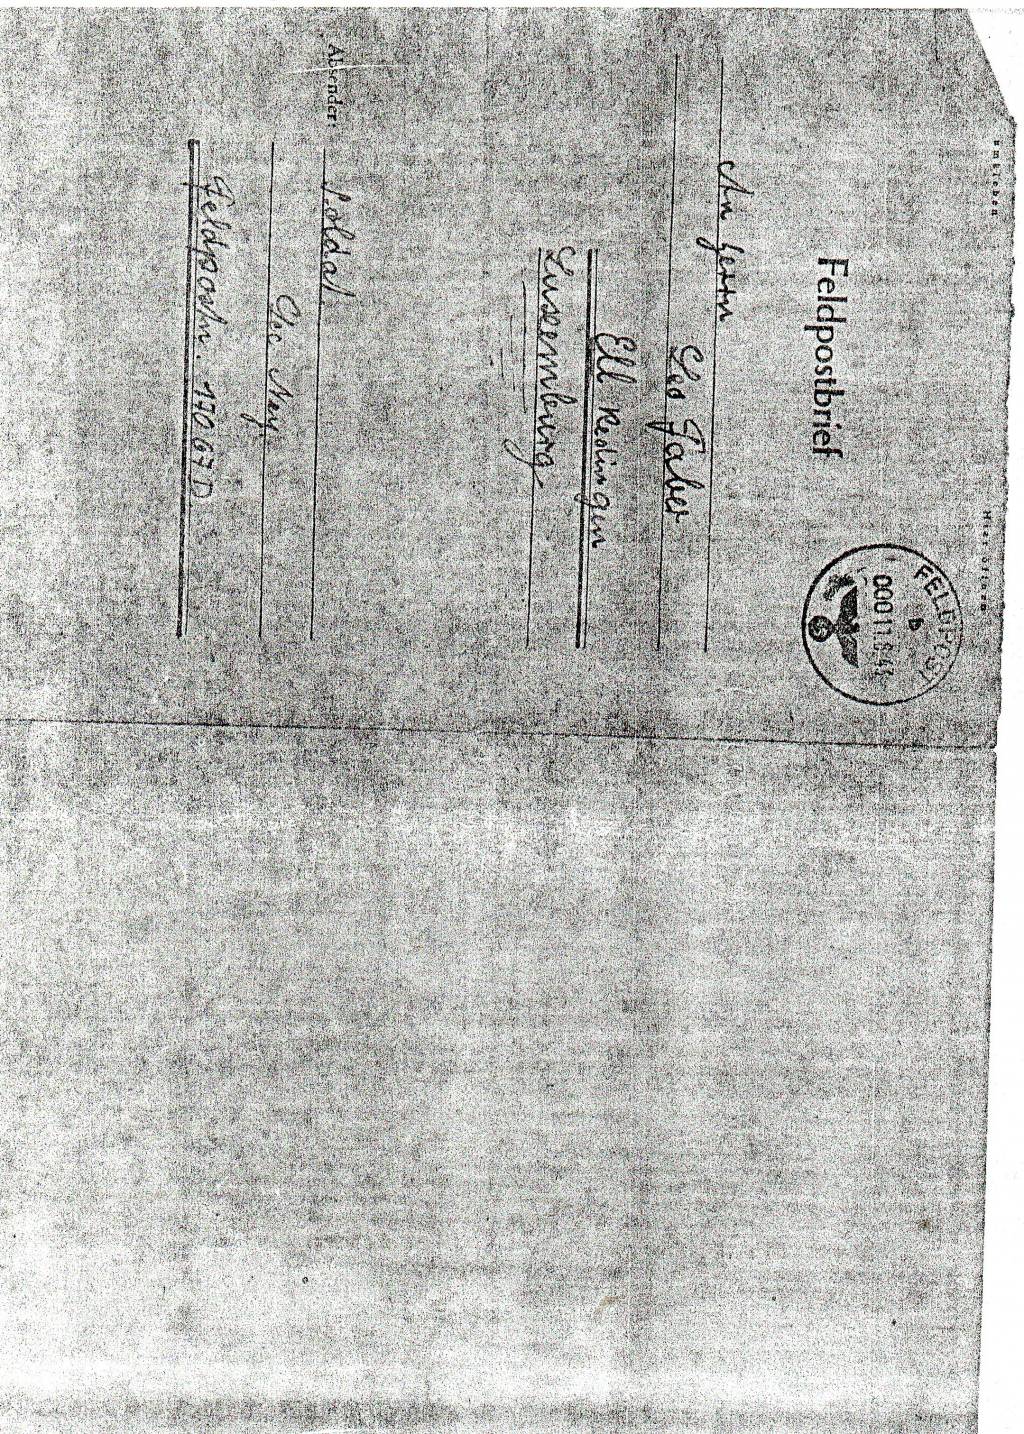 umkleben
Hier öffnen
Feldpostbrief
FELDPOST
b
An Herrn
Leo Faber
Ell Redingen
Luxemburg
Absender:
Soldat
Ney
Feldpostn. 17067 D